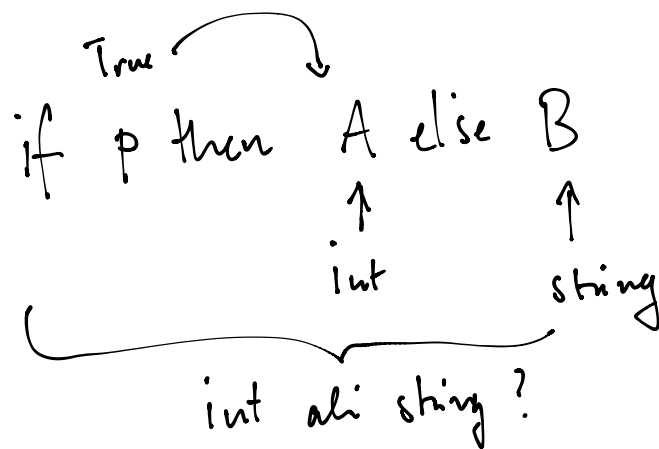 True
if p then A else B
int string
int ali string?